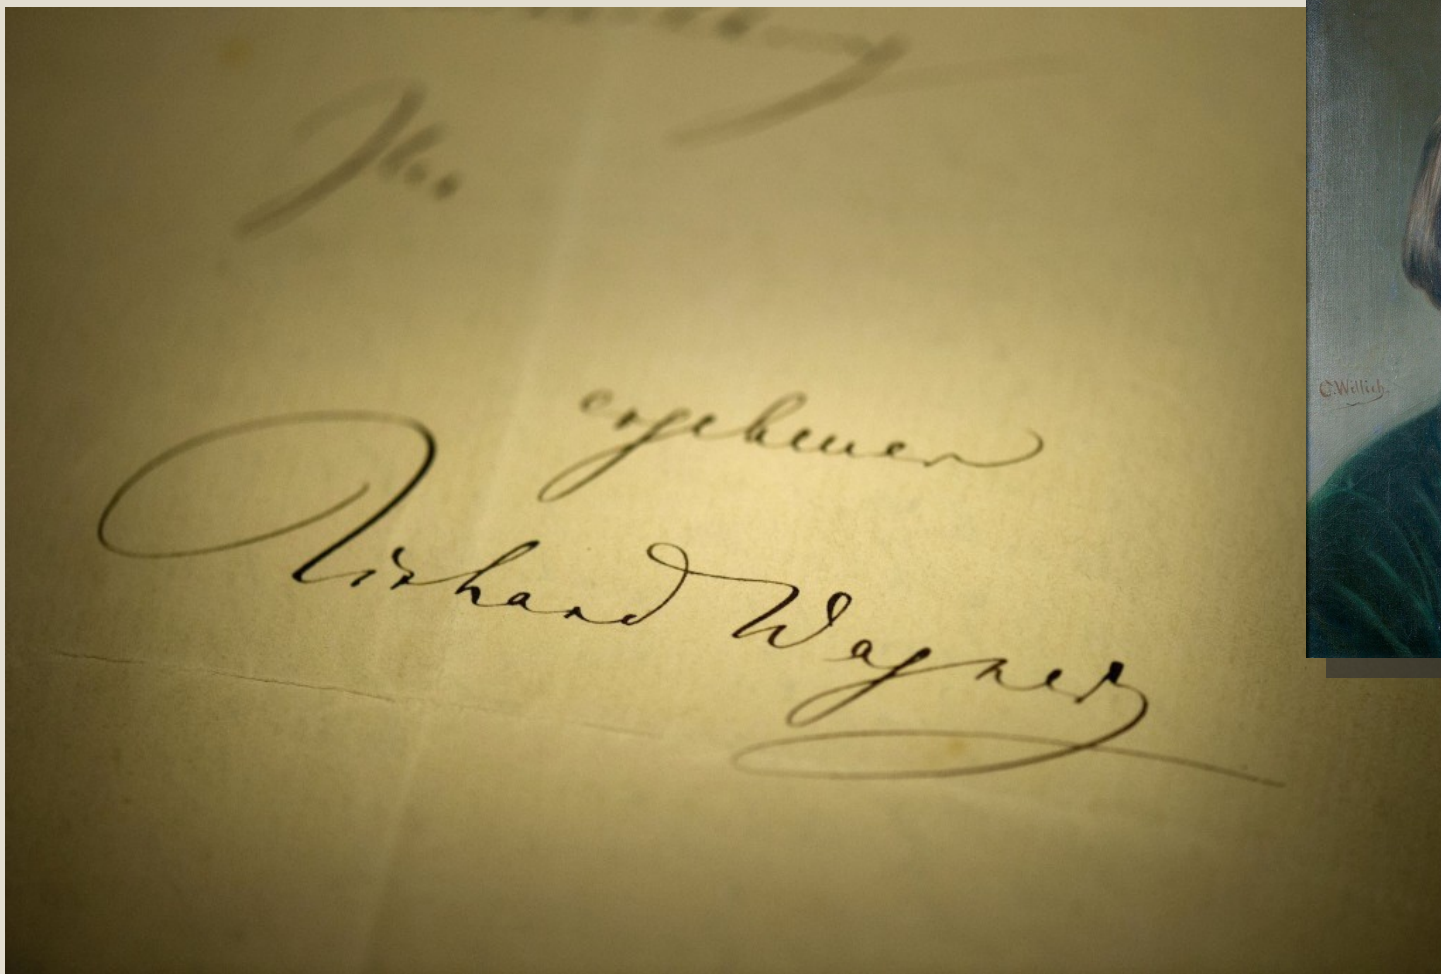 Ihr
ergebener
Richard Wagner
C. Willich.